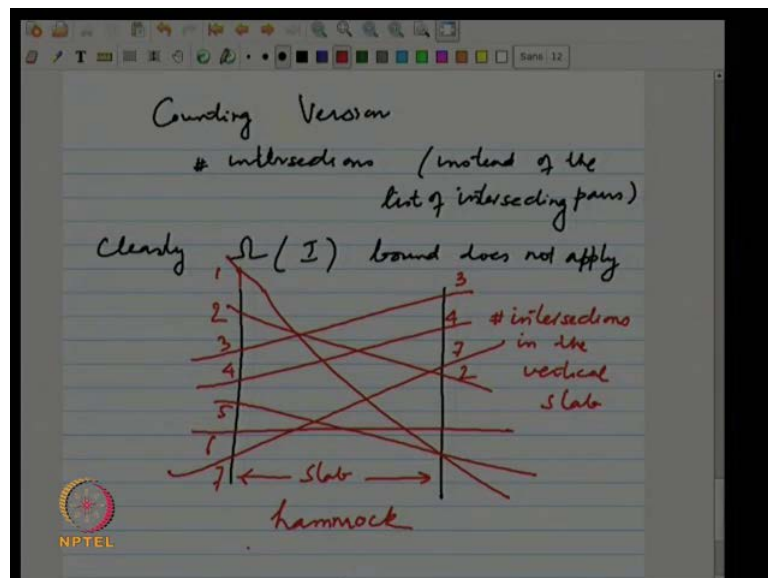 Sans 12
Counting Version
# intersections (instead of the
list of intersecting pairs)
Clearly Ω(I) bound does not apply
1
2
3
4
5
6
7
3
4
7
2
# intersections
in the
vertical
slab
← slab →
hammock
NPTEL